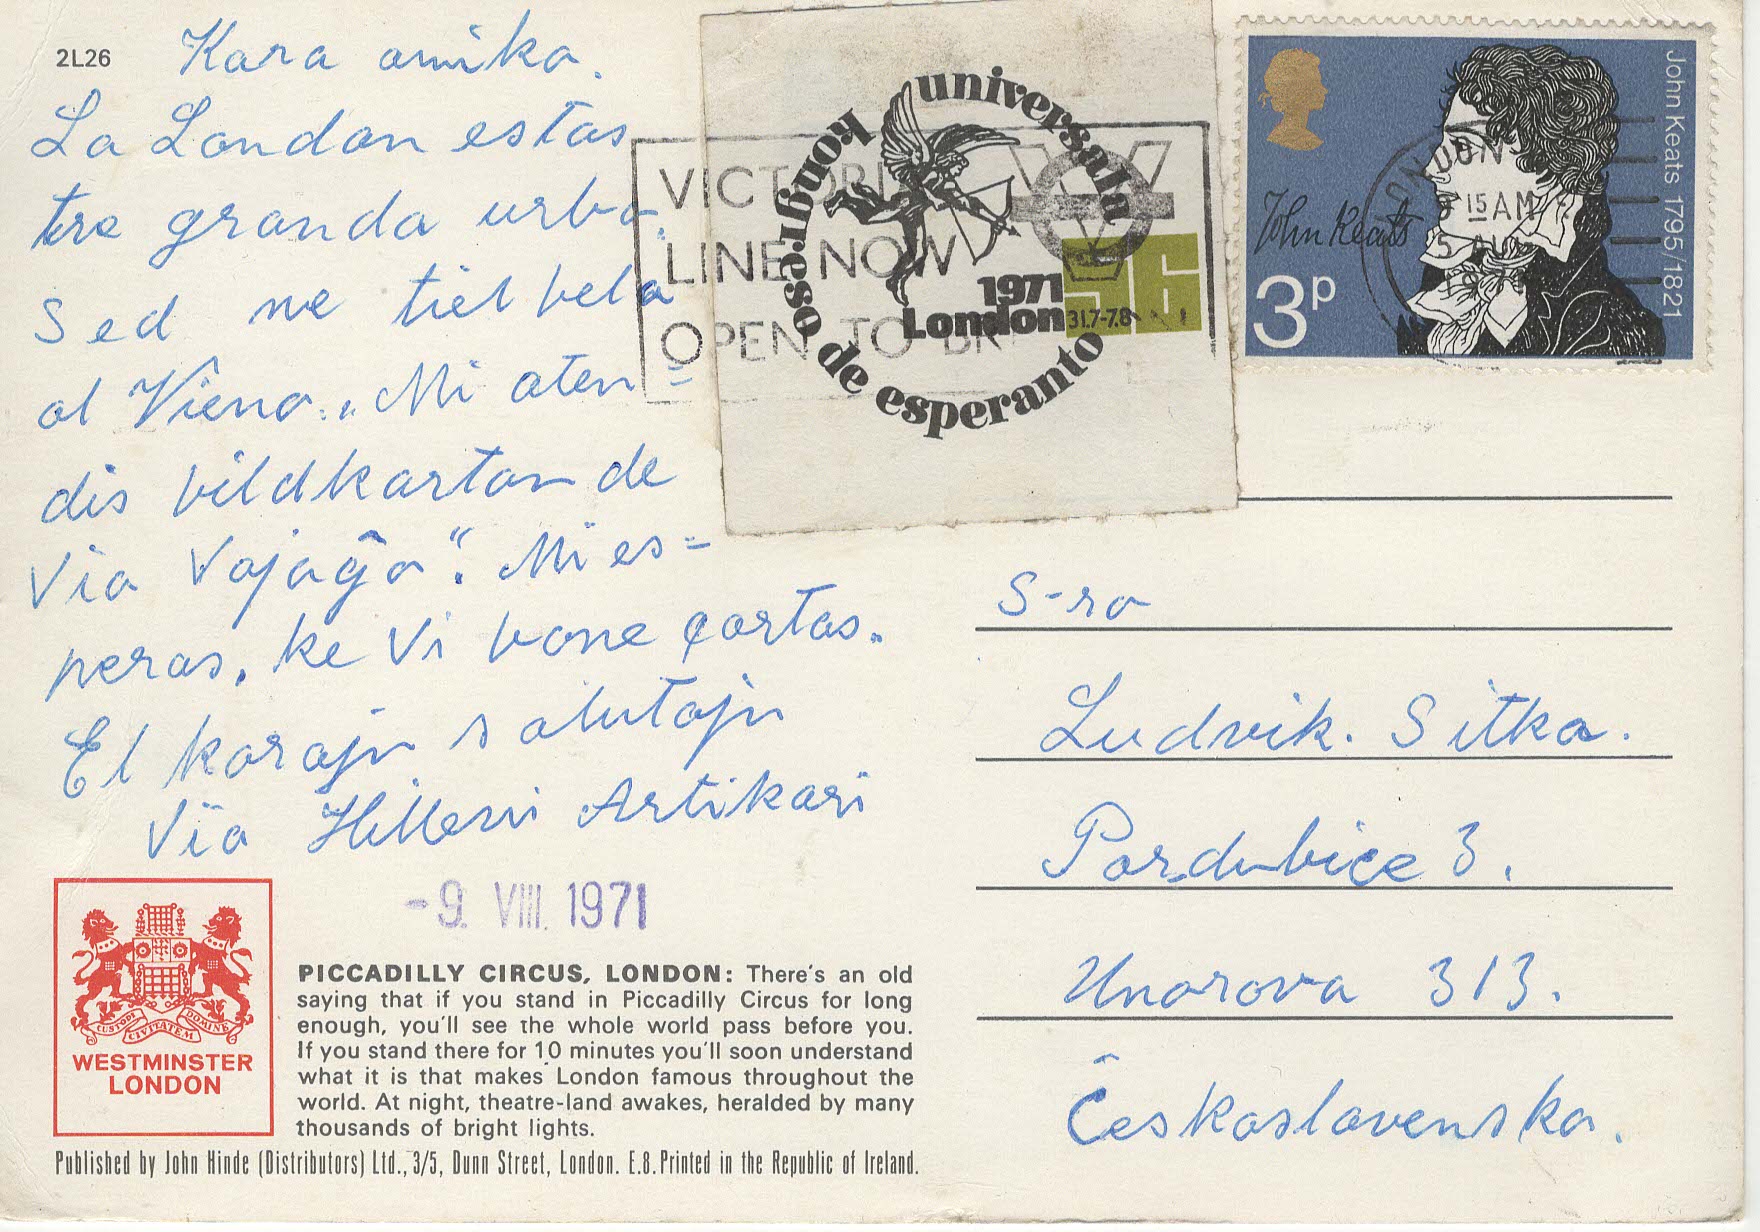 2L26
Kara amika.
La London estas
tre granda urbo.
Sed ne tiel bela
al Vieno. „Mi aten
dis bildkarton de
Via Vajaĝo“. Mi es=
peras, ke Vi bone çartas.
El korajn salutajn
Via Hilleri Artikari
-9. VIII. 1971
universala kongreso de esperanto
1971
London
56
31.7-7.8
VICTORIA
LINE NOW
OPEN TO
John Keats 1795/1821
John Keats
3p
LONDON
15 AM
5 AUG
S-ro
Ludvik. Sitka.
Pardubiçe 3.
Unorova 313.
Ĉeskoslavenska.
CUSTODI CIVITATEM DOMINE
WESTMINSTER
LONDON
PICCADILLY CIRCUS, LONDON: There's an old
saying that if you stand in Piccadilly Circus for long
enough, you'll see the whole world pass before you.
If you stand there for 10 minutes you'll soon understand
what it is that makes London famous throughout the
world. At night, theatre-land awakes, heralded by many
thousands of bright lights.
Published by John Hinde (Distributors) Ltd., 3/5, Dunn Street, London. E.8. Printed in the Republic of Ireland.